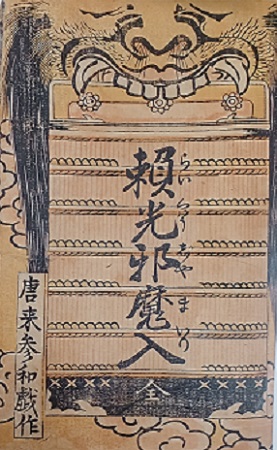 頼光邪魔入
らいくうじやまいり
全
唐来参和戯作